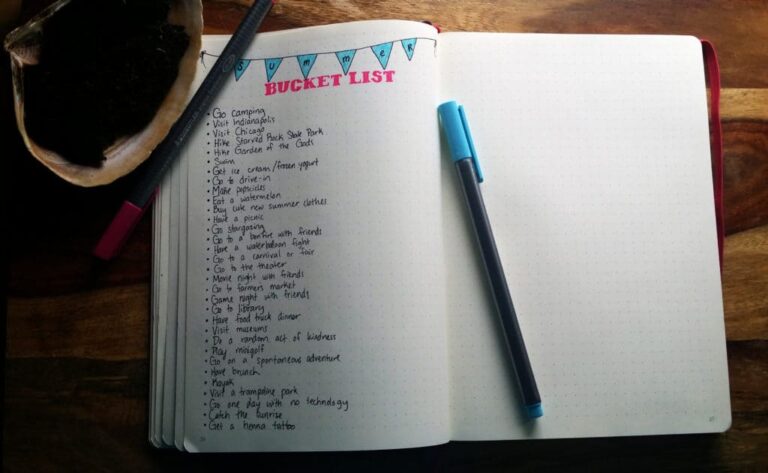 SUMMER
BUCKET LIST
• Go camping
• Visit Indianapolis
• Visit Chicago
• Hike Starved Rock State Park
• Hike Garden of the Gods
• Swim
• Get ice cream/frozen yogurt
• Go to drive-in
• Make popsicles
• Eat a watermelon
• Buy cute new summer clothes
• Have a picnic
• Go stargazing
• Go to a bonfire with friends
• Have a waterballoon fight
• Go to a carnival or fair
• Go to the theater
• Movie night with friends
• Go to farmers market
• Game night with friends
• Go to library
• Have food truck dinner
• Visit museums
• Do a random act of kindness
• Play minigolf
• Go on a spontaneous adventure
• Have brunch
• Kayak
• Visit a trampoline park
• Go one day with no technology
• Catch the sunrise
• Get a henna tattoo